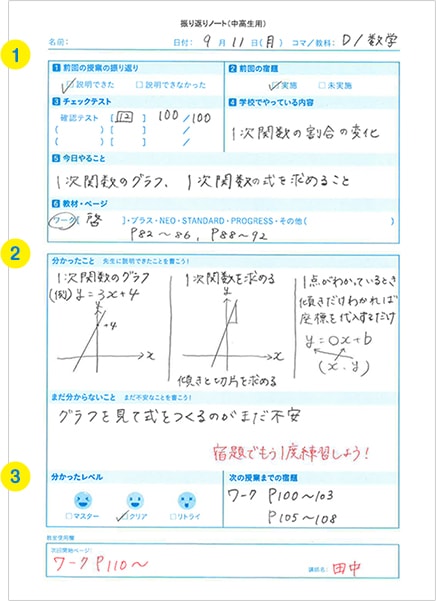 振り返りノート(中高生用)
名前: 日付: 9月11日(月) コマ/教科: D/数学
1
1 前回の授業の振り返り
☑説明できた □説明できなかった
2 前回の宿題
☑実施 □未実施
3 チェックテスト
確認テスト [12] 100/100
( )[ ] /
( )[ ] /
4 学校でやっている内容
1次関数の割合の変化
5 今日やること
1次関数のグラフ、1次関数の式を求めること
6 教材・ページ
ワーク[啓 ]・プラス・NEO・STANDARD・PROGRESS・その他( )
P82〜86, P88〜92
2
分かったこと 先生に説明できたことを書こう!
1次関数のグラフ
(例) y=3x+4
y
4
x
1次関数を求める
y
x
傾きと切片を求める
1点がわかっているとき
傾きだけわかれば
座標を代入するだけ
y=ax+b
(x, y)
まだ分からないこと まだ不安なことを書こう!
グラフを見て式をつくるのがまだ不安
宿題でもう1度練習しよう!
3
分かったレベル
□マスター ☑クリア □リトライ
次の授業までの宿題
ワーク P100〜103
P105〜108
教室使用欄
次回開始ページ:
ワークP110〜
講師名: 田中